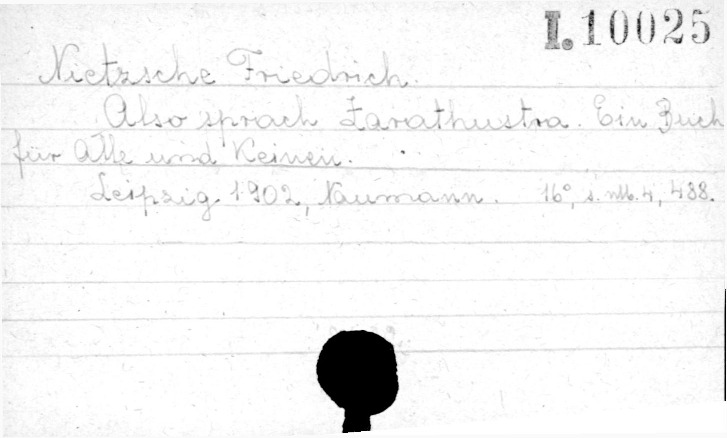 I. 10025
Nietzsche Friedrich.
Also sprach Zarathustra. Ein Buch
für Alle und Keinen.
Leipzig 1902, Naumann. 16°, s. 4, 488.